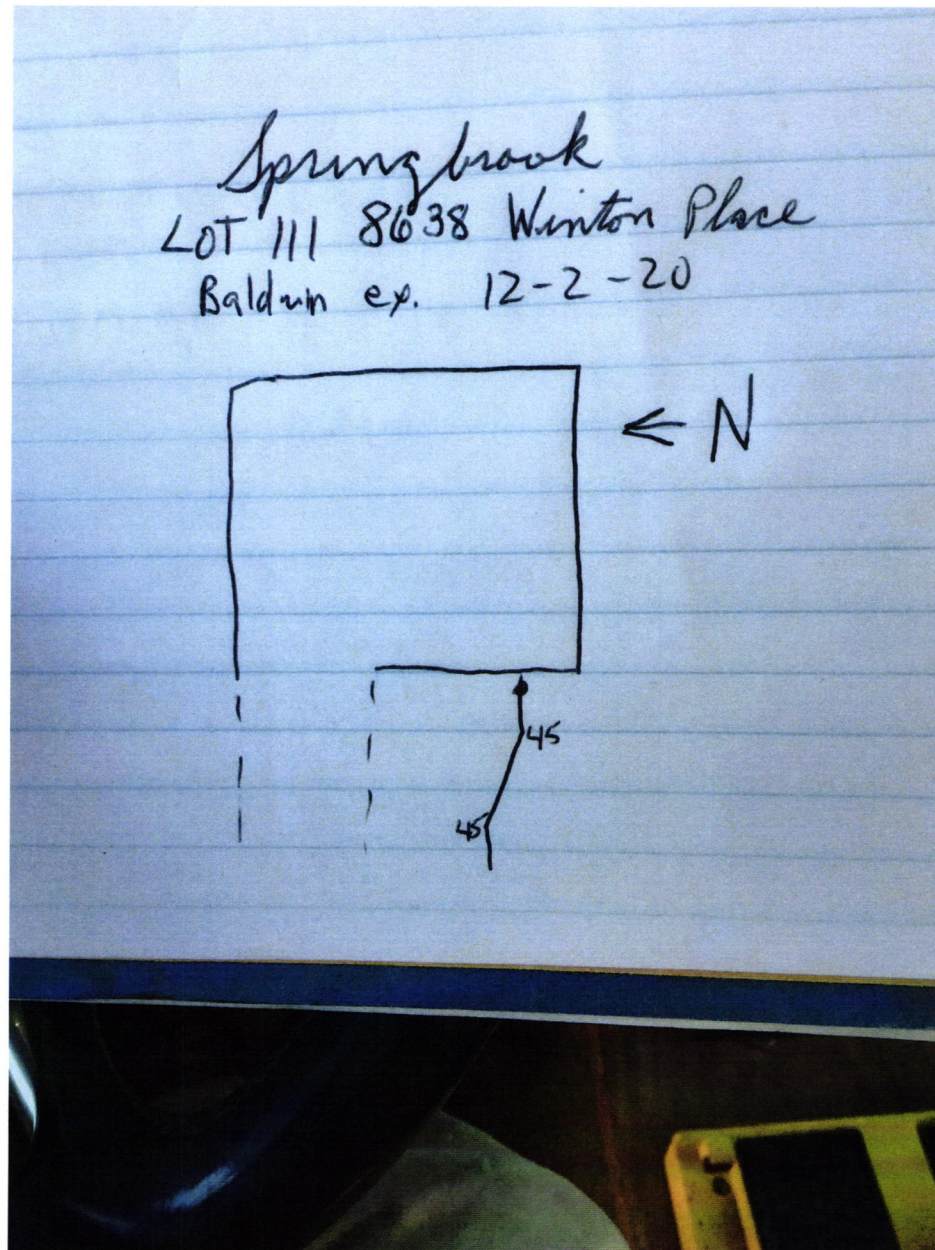 Springbrook
LOT 111 8638 Winton Place
Baldwin ex. 12-2-20
← N
45
45